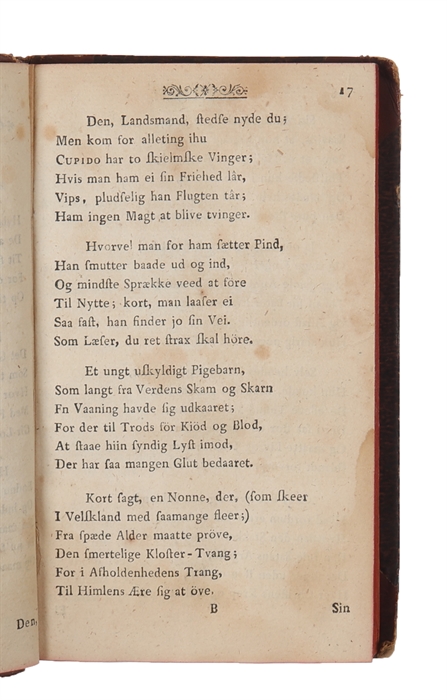 17
Den, Landsmand, ſtedſe nyde du;
Men kom for alleting ihu
CUPIDO har to ſkielmſke Vinger;
Hvis man ham ei ſin Friehed lâr,
Vips, pludſelig han Flugten târ;
Ham ingen Magt at blive tvinger.
Hvorvel man for ham ſætter Pind,
Han ſmutter baade ud og ind,
Og mindſte Sprække veed at före
Til Nytte; kort, man laaſer ei
Saa faſt, han finder jo ſin Vei.
Som Læſer, du ret ſtrax ſkal höre.
Et ungt uſkyldigt Pigebarn,
Som langt fra Verdens Skam og Skarn
Fn Vaaning havde ſig udkaaret;
For der til Trods för Kiöd og Blod,
At ſtaae hiin ſyndig Lyſt imod,
Der har ſaa mangen Glut bedaaret.
Kort ſagt, en Nonne, der, (ſom ſkeer
I Velſkland med ſaamange fleer;)
Fra ſpæde Alder maatte pröve,
Den ſmertelige Kloſter-Tvang;
For i Afholdenhedens Trang,
Til Himlens Ære ſig at öve.
B Sin
Den,